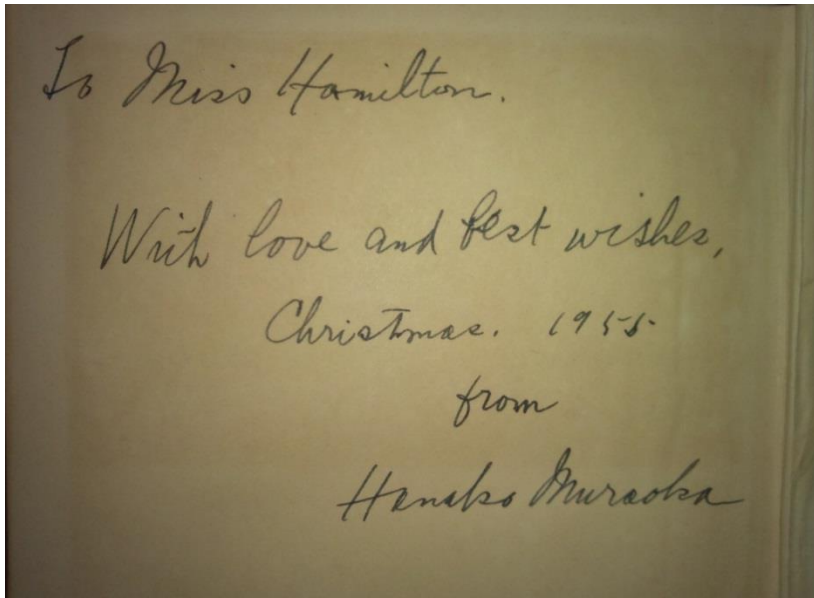 To Miss Hamilton.
With love and best wishes,
Christmas. 1955
from
Hanako Muraoka